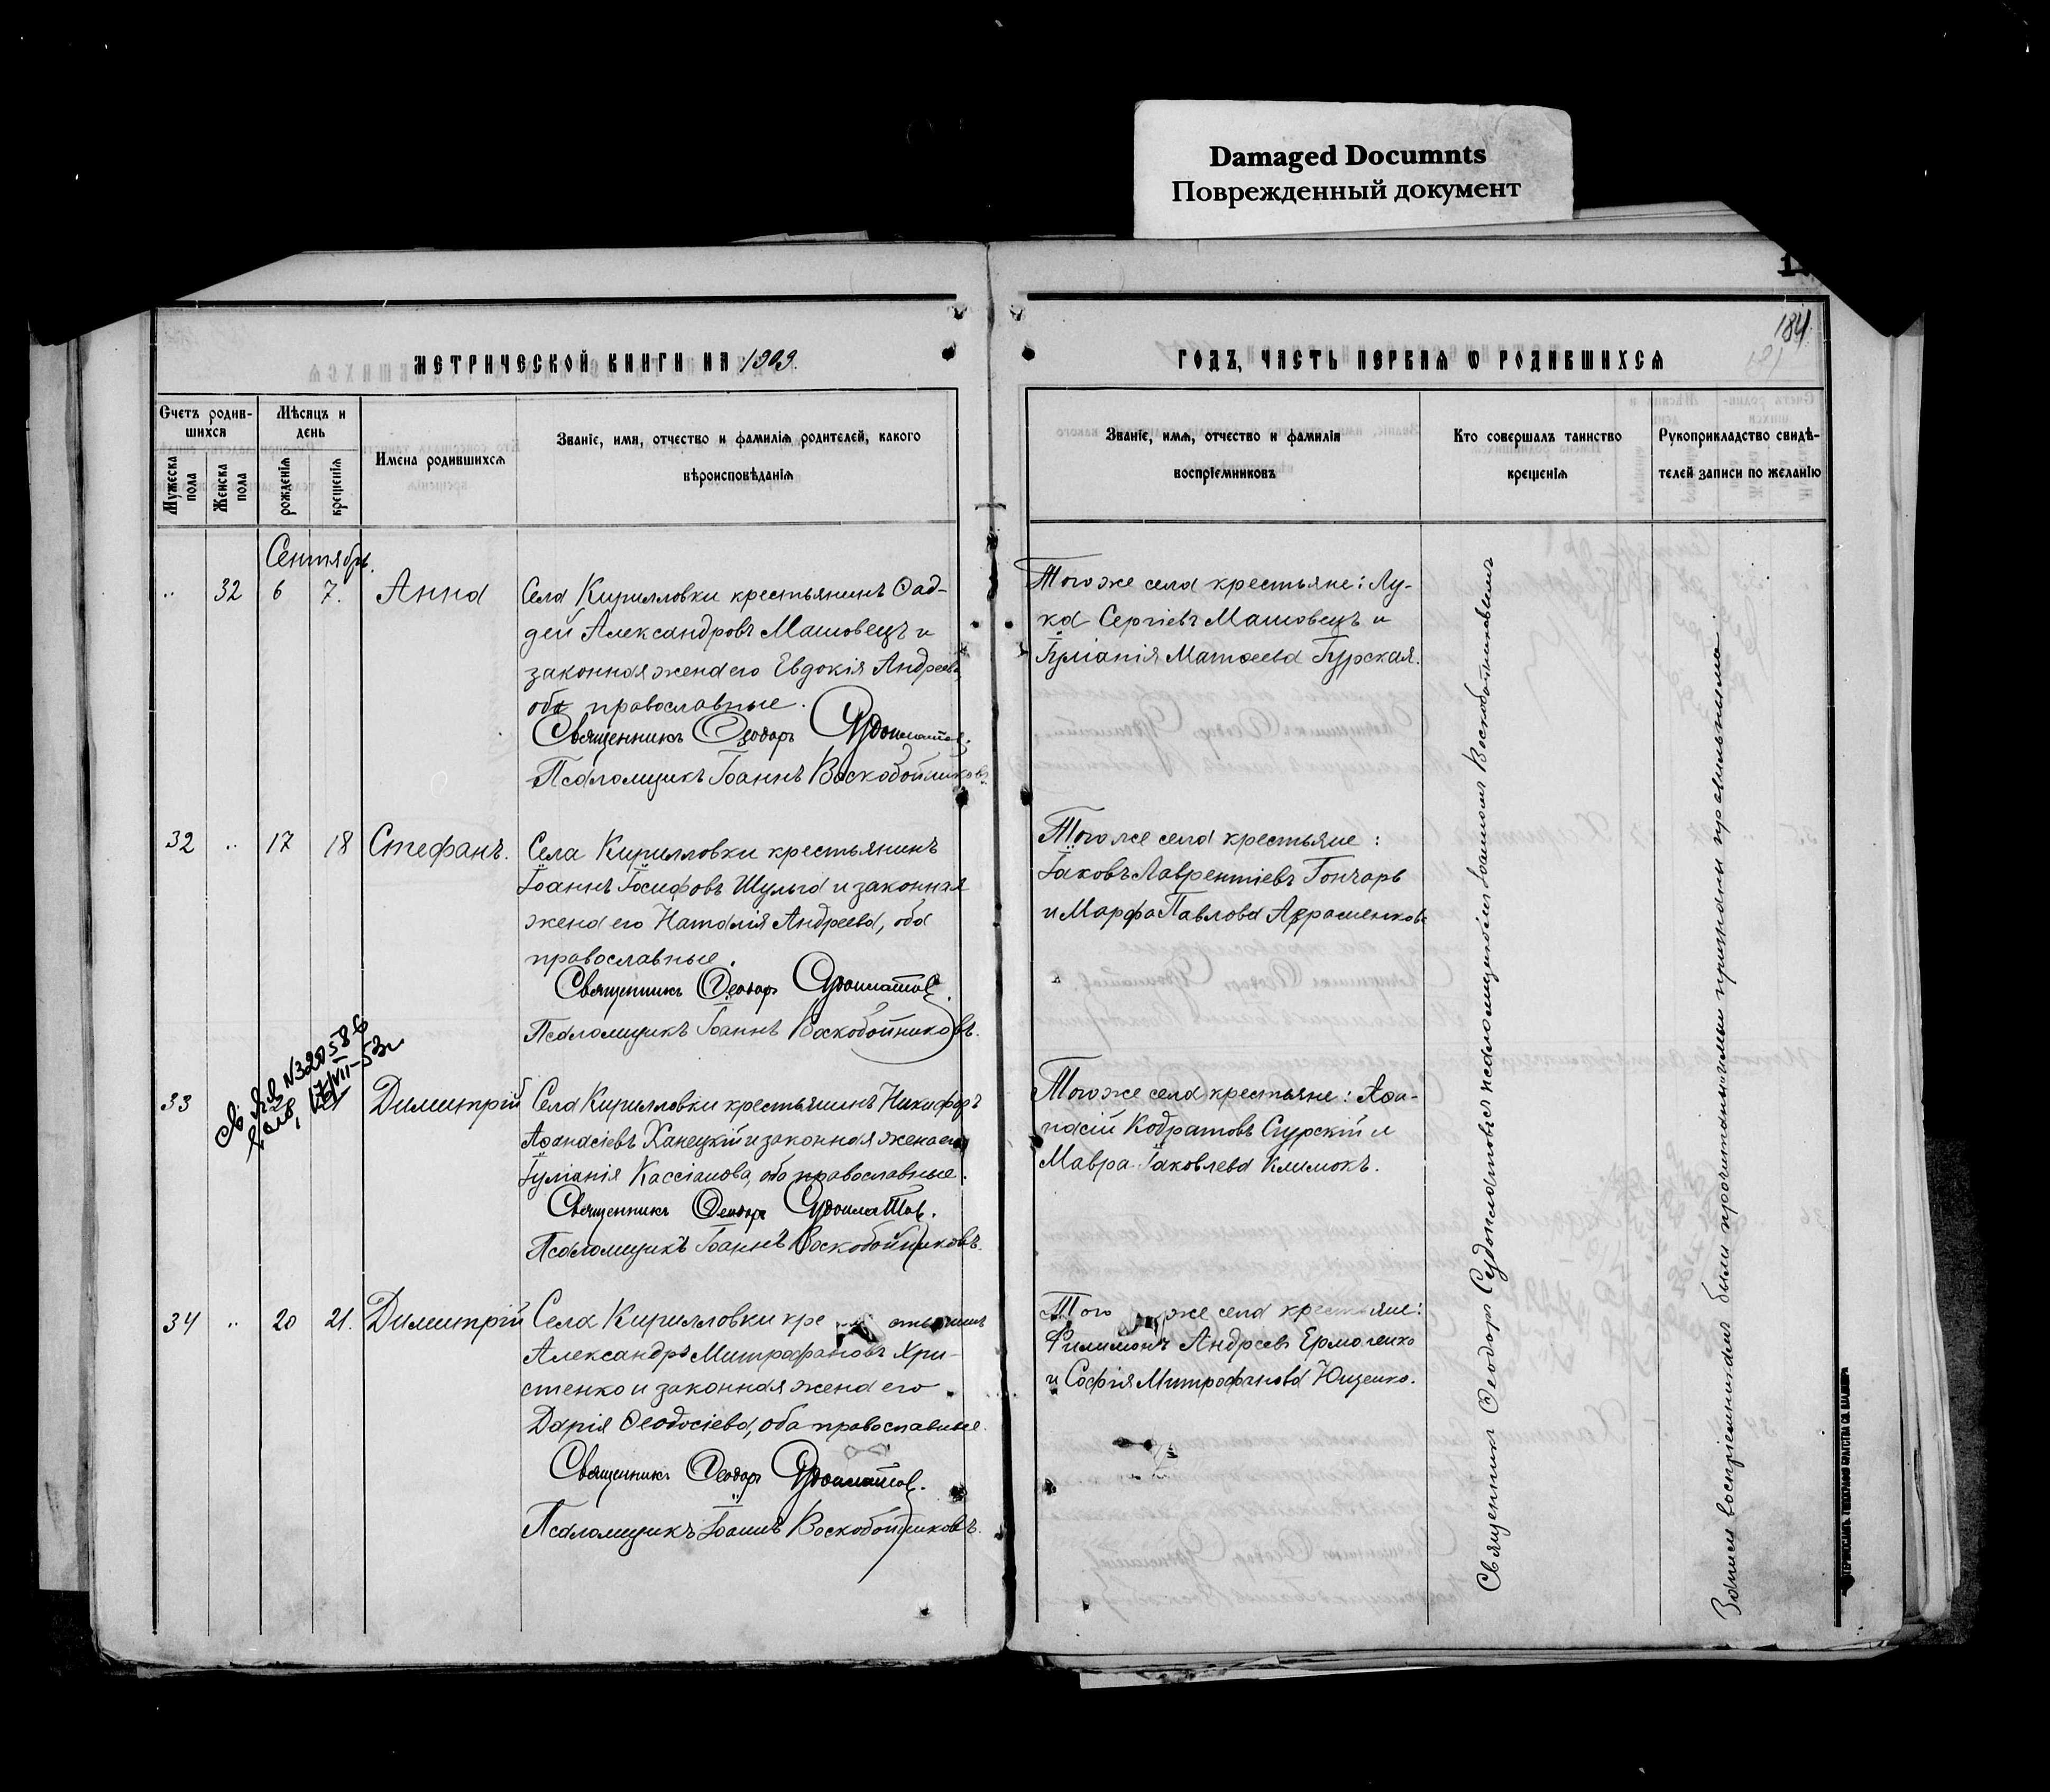 Damaged Documnts
Поврежденный документ
184
МЕТРИЧЕСКОЙ КНИГИ НА 1909.
Счетъ родив-
шихся
Мужеска пола
Женска пола
Мѣсяцъ и
день
рожденія
крещенія
Имена родившихся
Званіе, имя, отчество и фамилія родителей, какого
вѣроисповѣданія
Сентябрь.
.. 32 6 7. Анна
Села Кирилловки крестьянинъ Ѳад-
дей Александровъ Машовецъ и
законная жена его Евдокія Андреева,
оба православные.
Священникъ Ѳеодоръ Судоплатовъ.
Псаломщикъ Іоаннъ Воскобойниковъ.
32 .. 17 18 Стефанъ.
Села Кирилловки крестьянинъ
Іоаннъ Іосифовъ Шульга и законная
жена его Наталія Андреева, оба
православные.
Священникъ Ѳеодоръ Судоплатовъ.
Псаломщикъ Іоаннъ Воскобойниковъ.
33 Димитрій
Села Кирилловки крестьянинъ Никифоръ
Аѳанасіевъ Ханецкій и законная жена его
Іуліанія Кассіанова, оба православные.
Священникъ Ѳеодоръ Судоплатовъ.
Псаломщикъ Іоаннъ Воскобойниковъ.
34 .. 20 21. Димитрій
Села Кирилловки крестьянинъ
Александръ Митрофановъ Хри-
стенко и законная жена его
Дарія Ѳеодосіева, оба православные.
Священникъ Ѳеодоръ Судоплатовъ.
Псаломщикъ Іоаннъ Воскобойниковъ.
ГОДЪ, ЧАСТЬ ПЕРВАЯ Ѡ РОДИВШИХСЯ
Званіе, имя, отчество и фамилія
воспріемниковъ
Кто совершалъ таинство
крещенія
Рукоприкладство свидѣ-
телей записи по желанію
Того же села крестьяне: Лу-
ка Сергіевъ Машовецъ и
Іуліанія Матѳеева Гурская.
Того же села крестьяне:
Іаковъ Лаврентіевъ Гончаръ
и Марфа Павлова
Того же села крестьяне: Аѳа-
насій Кодратовъ Сурскій и
Мавра Іаковлева Климокъ.
Того же села крестьяне:
Филимонъ Андреевъ Ермоленко
и Софія Митрофанова Ющенко.
Священникъ Ѳеодоръ Судоплатовъ съ псаломщикомъ Іоанномъ Воскобойниковымъ
Записи воспріемникамъ были прочитаны и ими признаны правильными.